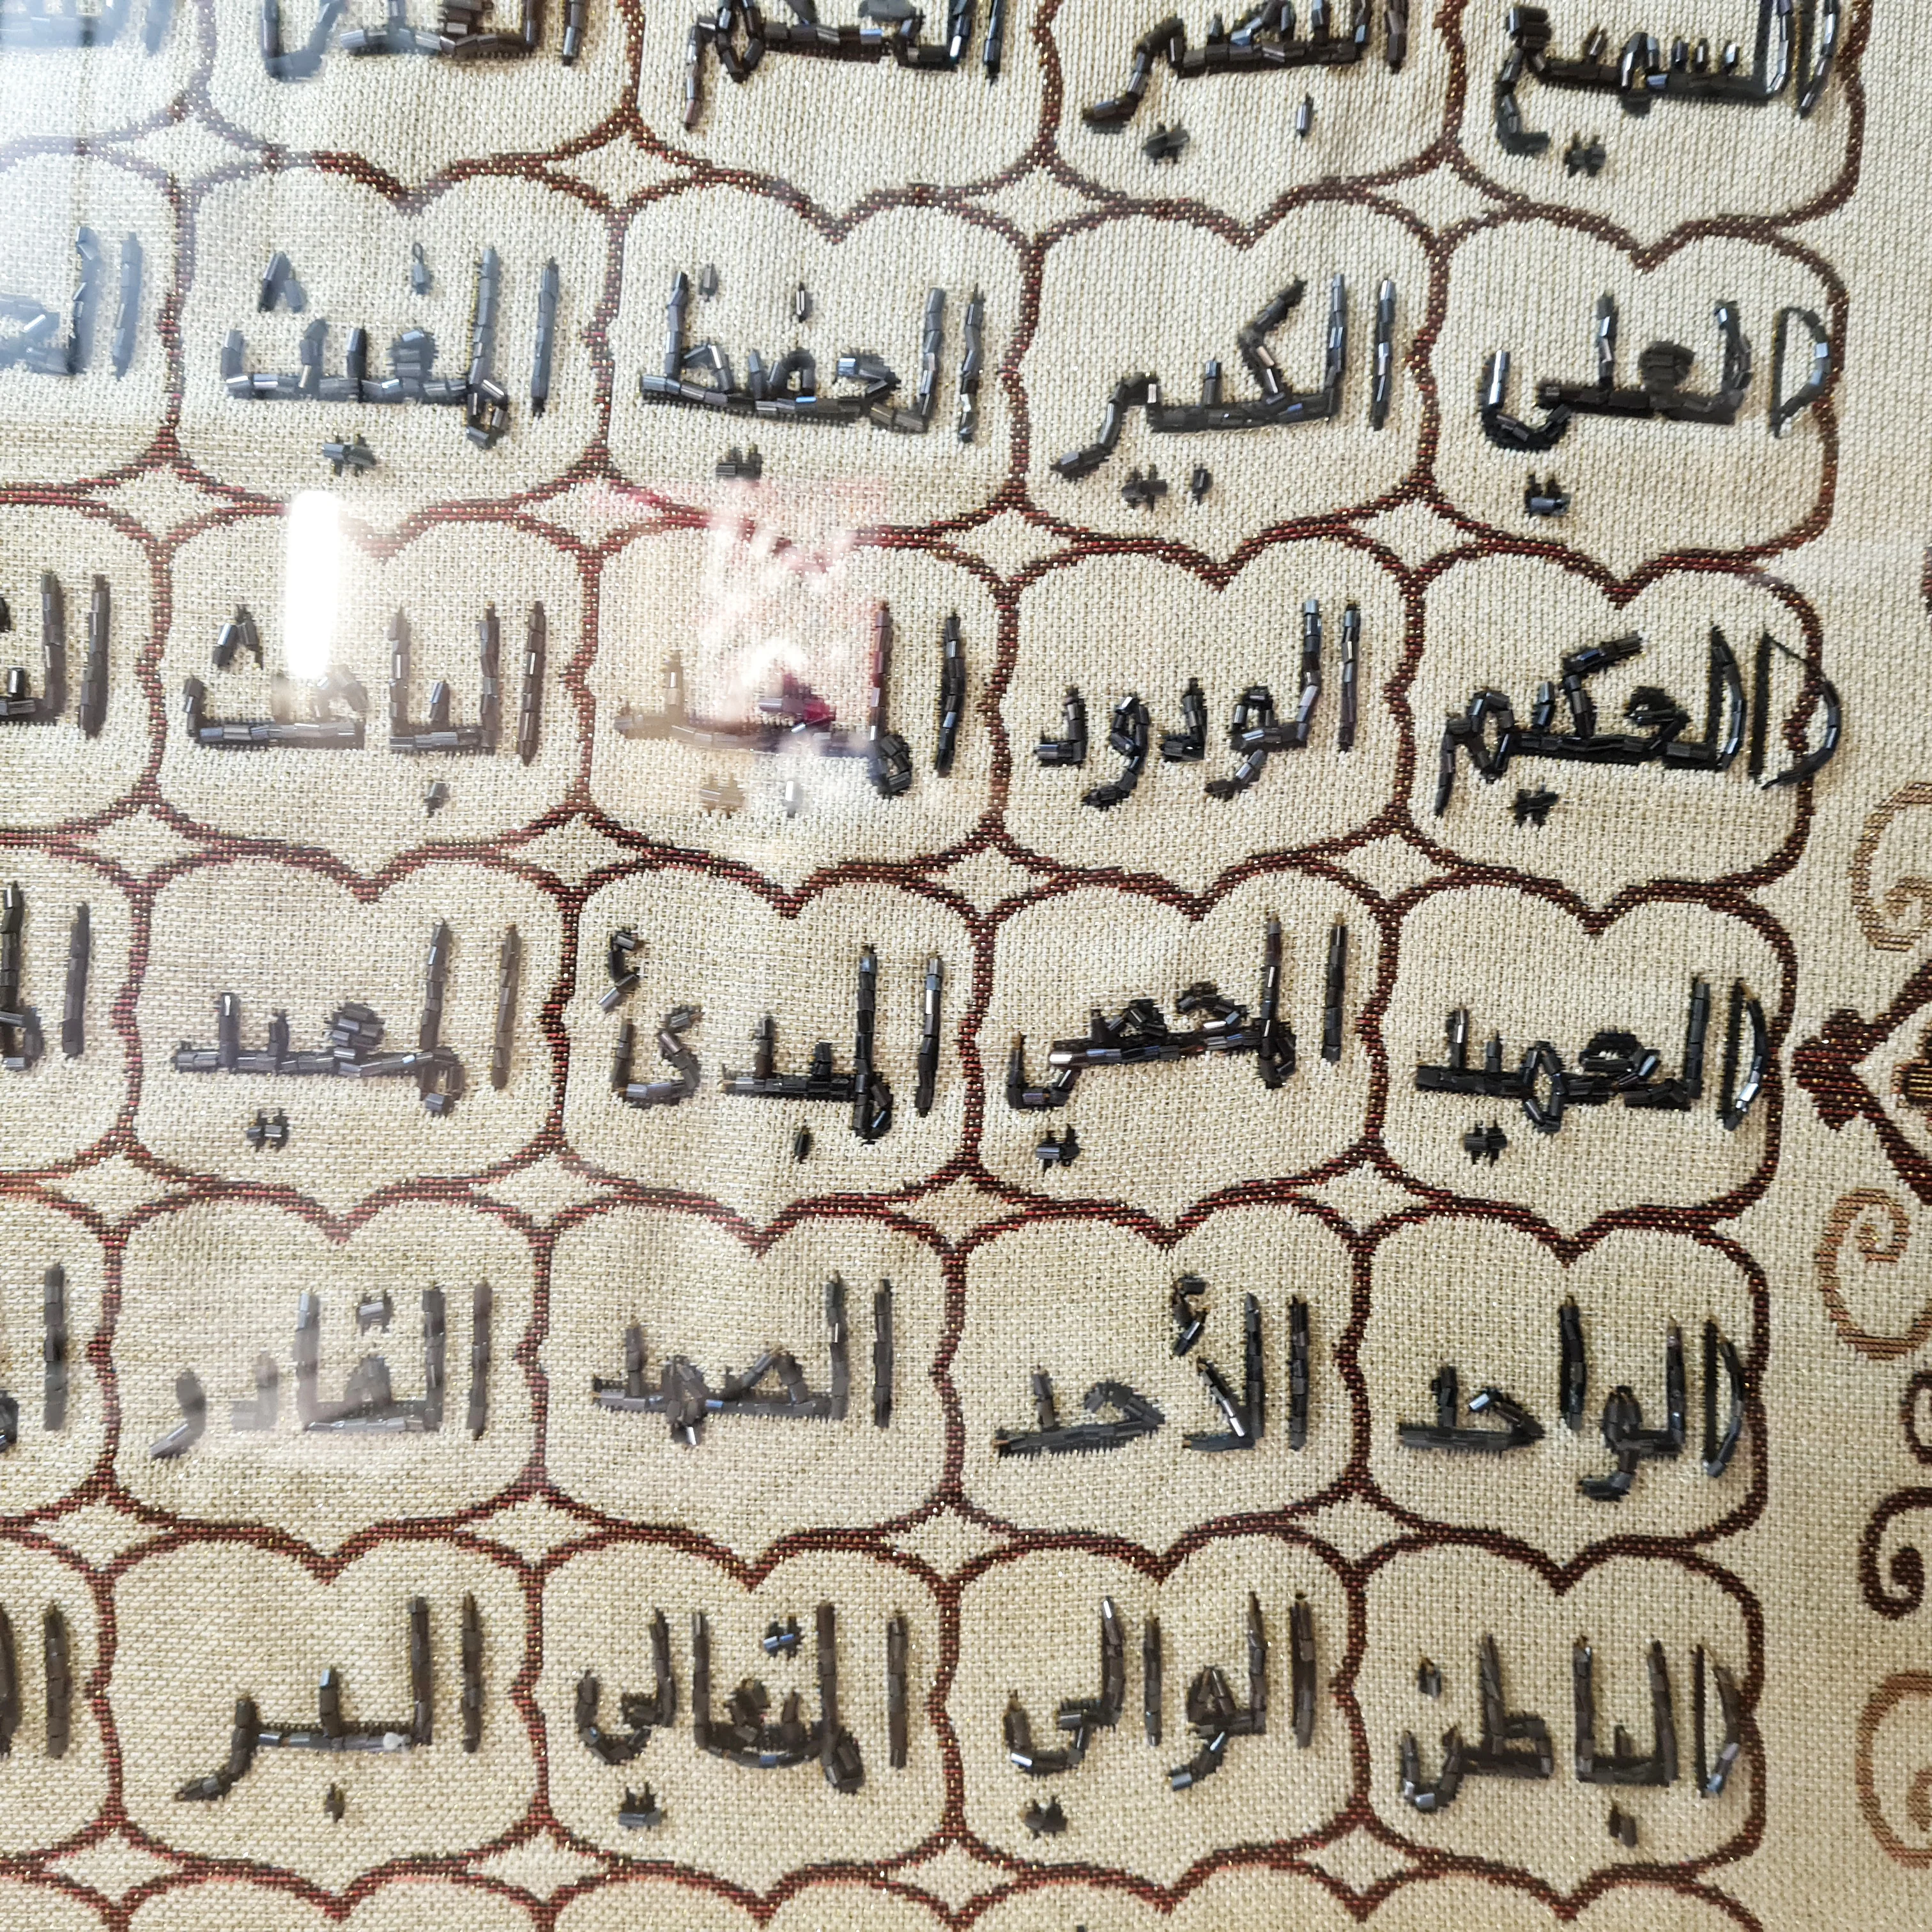 السميع البصير الحكم
العلي الكبير الحفيظ المغيث
الحكيم الودود المجيد الباعث
الحميد المحصي المبدئ المعيد
الواحد الأحد الصمد القادر
الباطن الوالي المتعالي البر